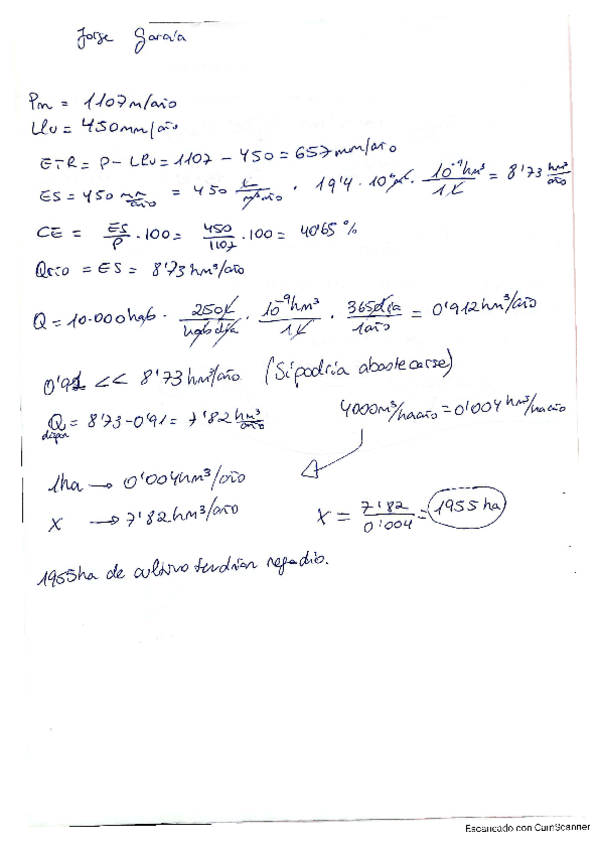 Jorge García
Pm = 1107 m/año
Lℓu = 450 mm/año
ETR = P - Lℓu = 1107 - 450 = 657 mm/año
ES = 450 mm/año = 450 L/m² año · 19'4 · 10⁶ m² · 10⁻⁹ hm³/1 L = 8'73 hm³/año
CE = ES/P · 100 = 450/1107 · 100 = 40'65 %
Qrio = ES = 8'73 hm³/año
Q = 10.000 hab · 250 L/hab día · 10⁻⁹ hm³/1 L · 365 día/1 año = 0'912 hm³/año
0'91 << 8'73 hm³/año (Si podría abastecerse)
Q dispon = 8'73 - 0'91 = 7'82 hm³/año
4000 m³/ha año = 0'004 hm³/ha año
1ha → 0'004 hm³/año
X → 7'82 hm³/año
X = 7'82/0'004 = 1955 ha
1955 ha de cultivo tendrían regadío.
Escaneado con CamScanner